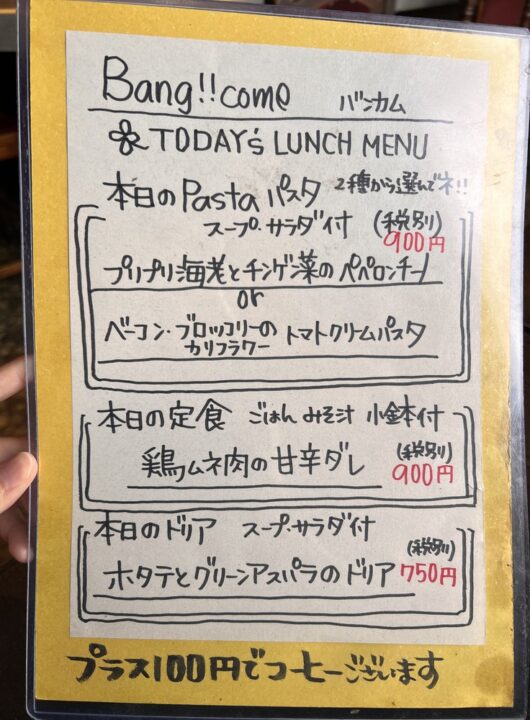 Bang!!come バンカム
TODAY's LUNCH MENU
本日のPasta パスタ 2種から選んでネ!!
スープ・サラダ付 (税別)
900円
プリプリ海老とチンゲン菜のペペロンチーノ
or
ベーコン・ブロッコリーの
カリフラワー トマトクリームパスタ
本日の定食 ごはん みそ汁 小鉢付
(税別)
鶏ムネ肉の甘辛ダレ 900円
本日のドリア スープ・サラダ付
(税別)
ホタテとグリーンアスパラのドリア 750円
プラス100円でコーヒーございます